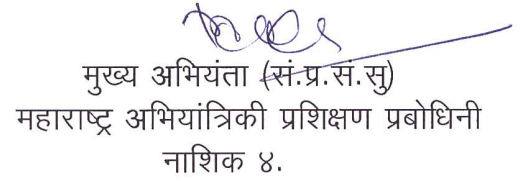 मुख्य अभियंता (सं.प्र.सं.सु)
महाराष्ट्र अभियांत्रिकी प्रशिक्षण प्रबोधिनी
नाशिक ४.